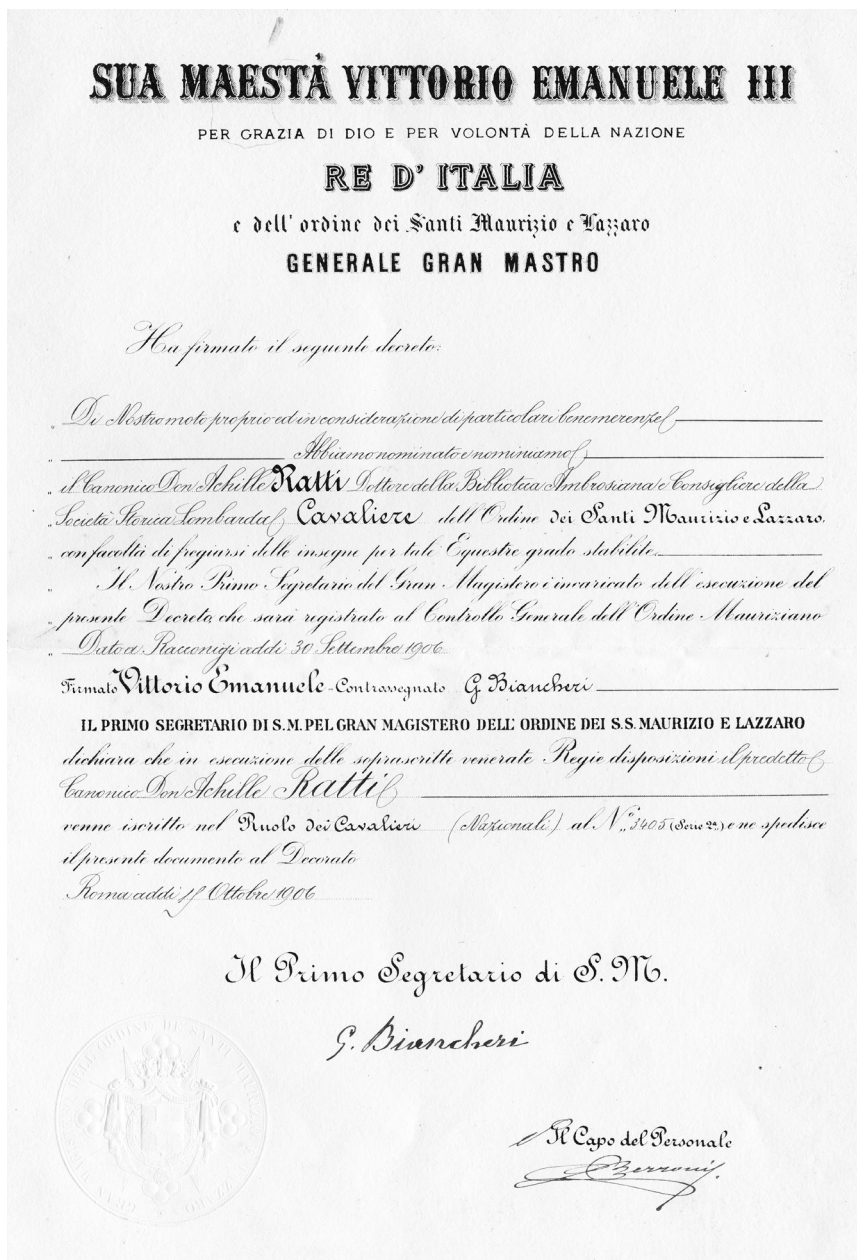 SUA MAESTÀ VITTORIO EMANUELE III
PER GRAZIA DI DIO E PER VOLONTÀ DELLA NAZIONE
RE D' ITALIA
e dell' ordine dei Santi Maurizio e Lazzaro
GENERALE GRAN MASTRO
Ha firmato il seguente decreto:
„ Di Nostro moto proprio ed in considerazione di particolari benemerenze
„ Abbiamo nominato e nominiamo
„ il Canonico Don Achille Ratti Dottore della Biblioteca Ambrosiana e Consigliere della
„ Società Storica Lombarda Cavaliere dell'Ordine dei Santi Maurizio e Lazzaro,
„ con facoltà di fregiarsi delle insegne per tale Equestre grado stabilite.
„ Il Nostro Primo Segretario del Gran Magistero è incaricato dell'esecuzione del
„ presente Decreto, che sarà registrato al Controllo Generale dell'Ordine Mauriziano
„ Dato a Racconigi addì 30 Settembre 1906
Firmato Vittorio Emanuele - Contrassegnato G Biancheri
IL PRIMO SEGRETARIO DI S. M. PEL GRAN MAGISTERO DELL' ORDINE DEI S.S. MAURIZIO E LAZZARO
dichiara che in esecuzione delle soprascritte venerate Regie disposizioni il predetto
Canonico Don Achille Ratti
venne iscritto nel Ruolo dei Cavalieri (Nazionali) al N° 3405 (Serie 2ª) e ne spedisce
il presente documento al Decorato
Roma addì Ottobre 1906
Il Primo Segretario di S. M.
G. Biancheri
Il Capo del Personale